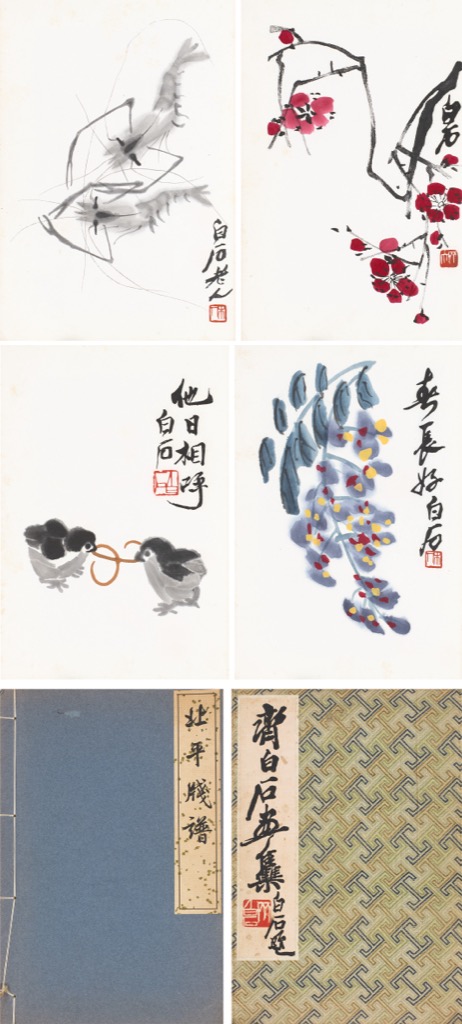 白石老人
白石
他日相呼
白石
春長好白石
北平牋譜
齊白石画集
白石題